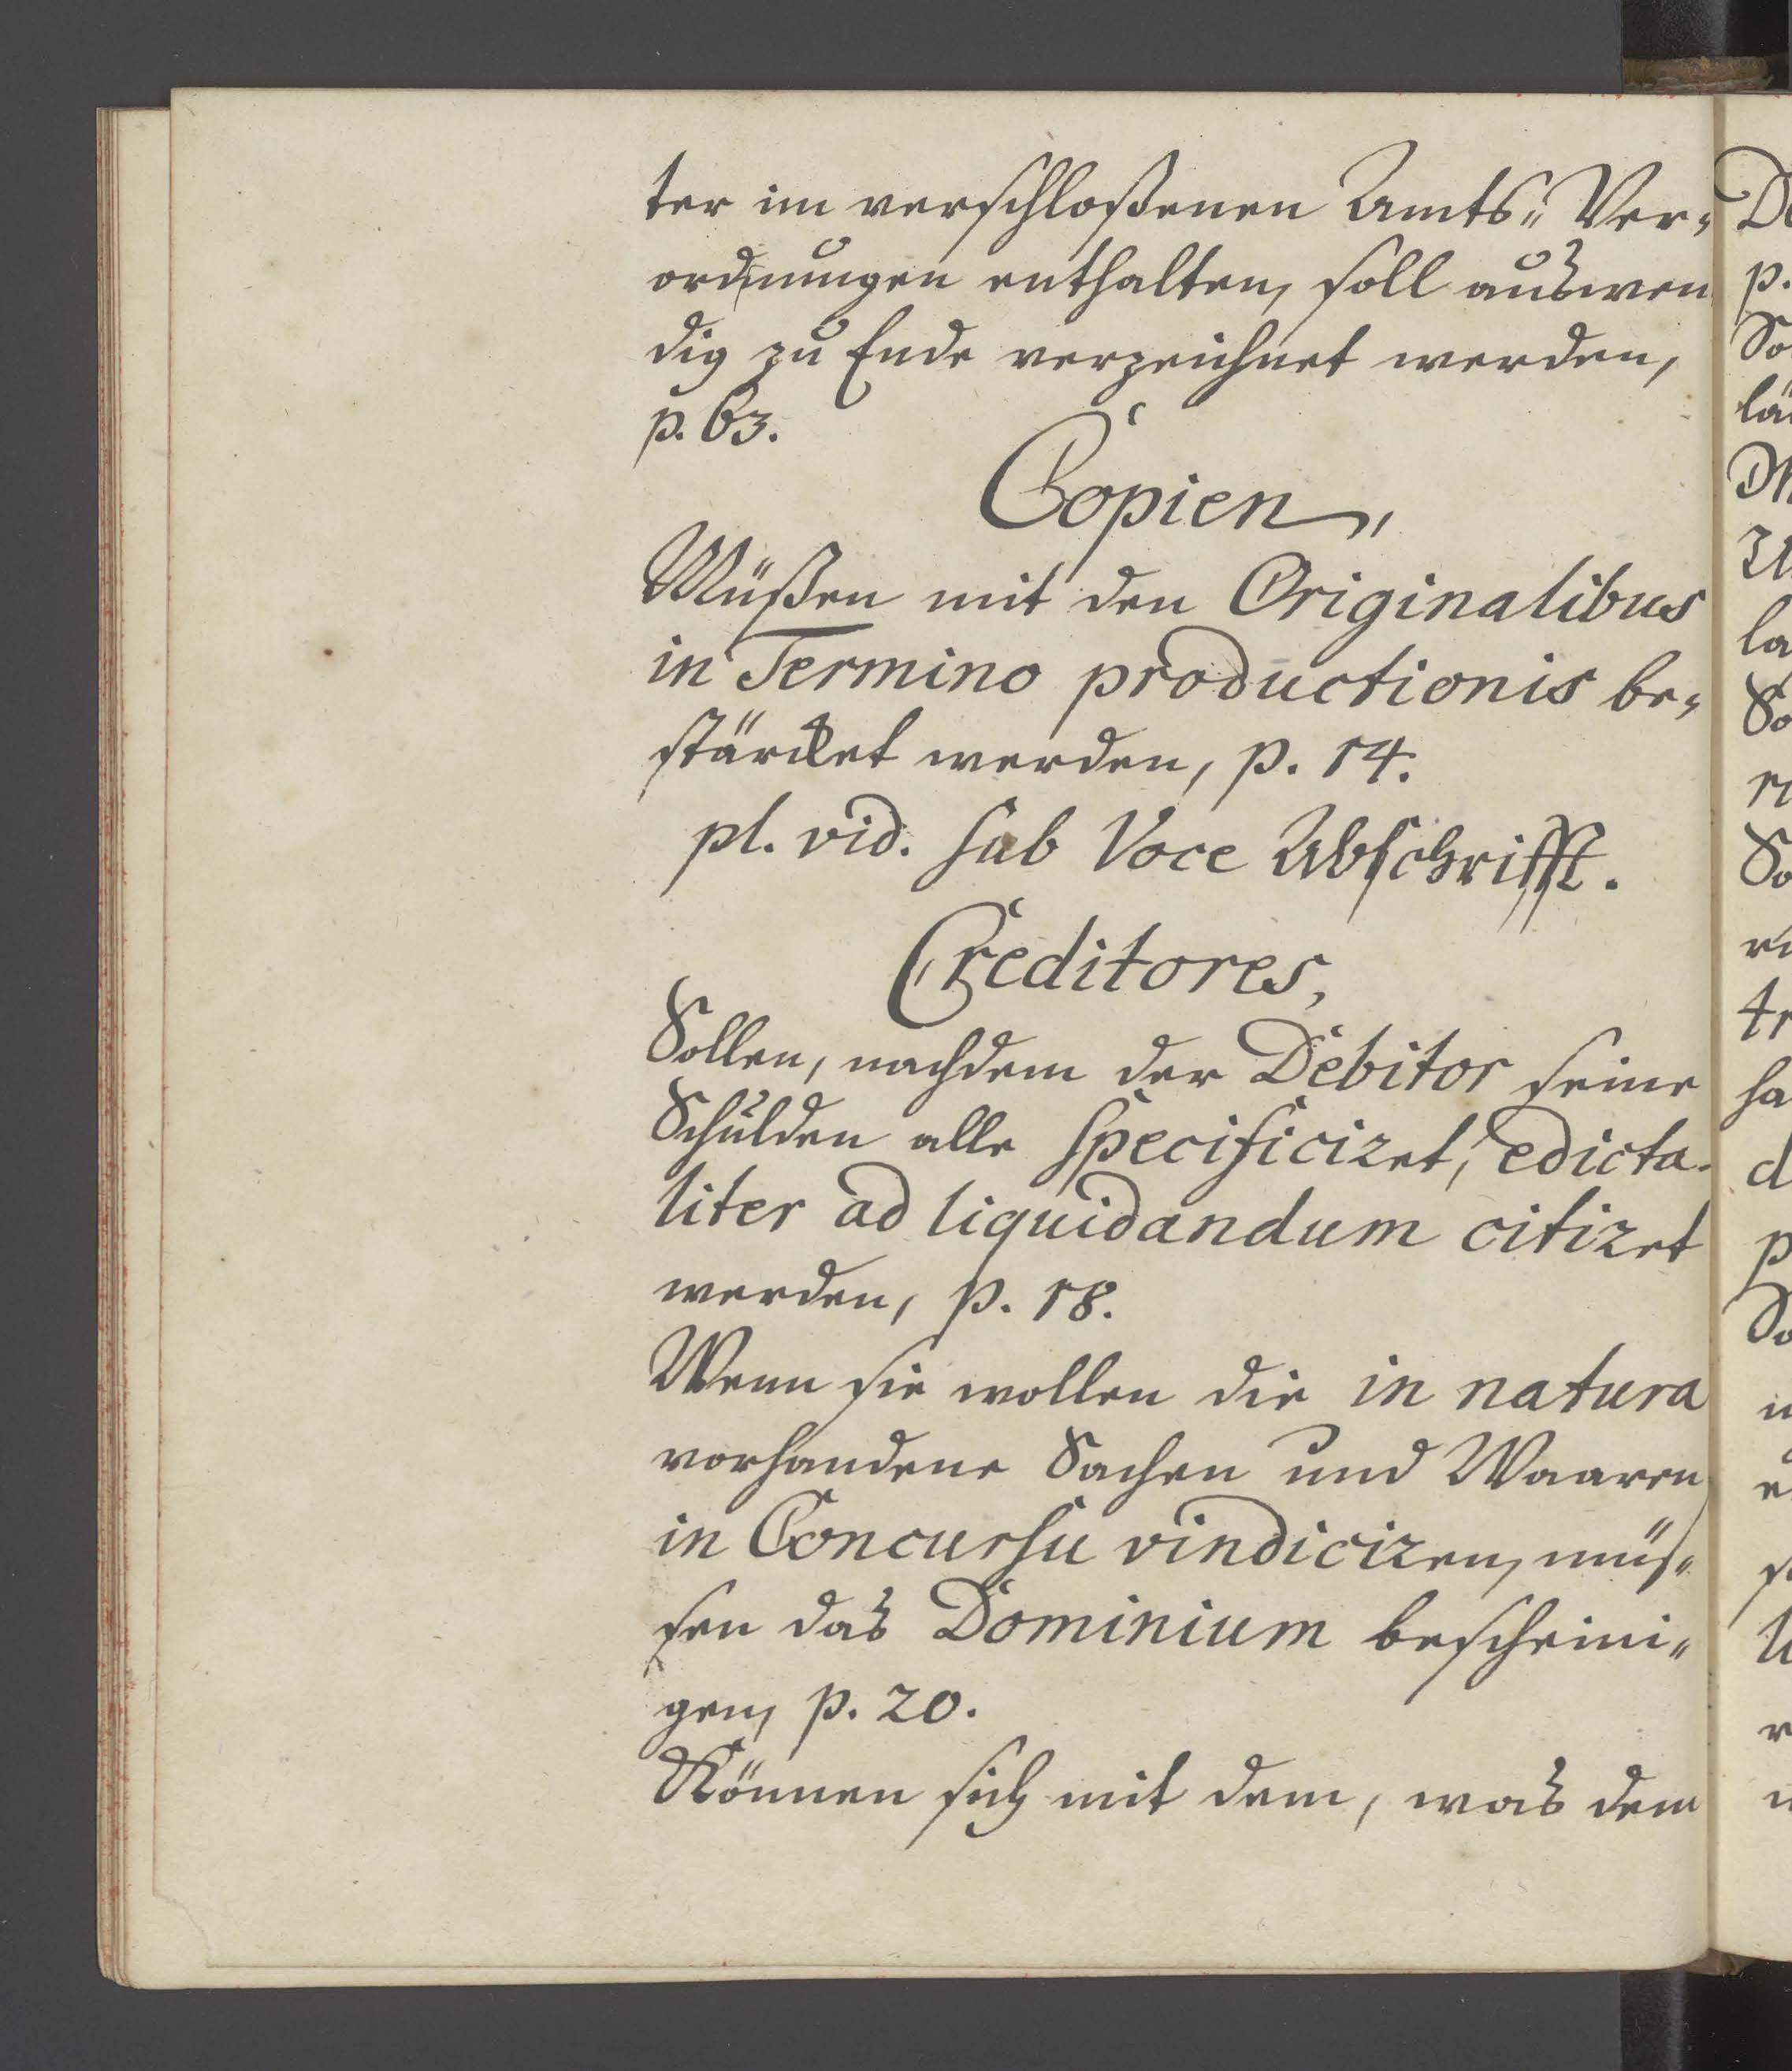 ter im verschloßenen Amts-Ver-
ordnungen enthalten, soll auswen
dig zu Ende verzeichnet werden,
p. 63.
Copien,
Müßen mit den Originalibus
in Termino productionis be-
stärcket werden, p. 14.
pl. vid. sub Voce Abschrifft.
Creditores,
Sollen, nachdem der Debitor seine
Schulden alle specificiret, edicta-
liter ad liquidandum citiret
werden, p. 18.
Wenn sie wollen die in natura
vorhandene Sachen und Waaren
in Concursu vindiciren, müs-
sen das Dominium bescheini-
gen, p. 20.
Können sich mit dem, was dem